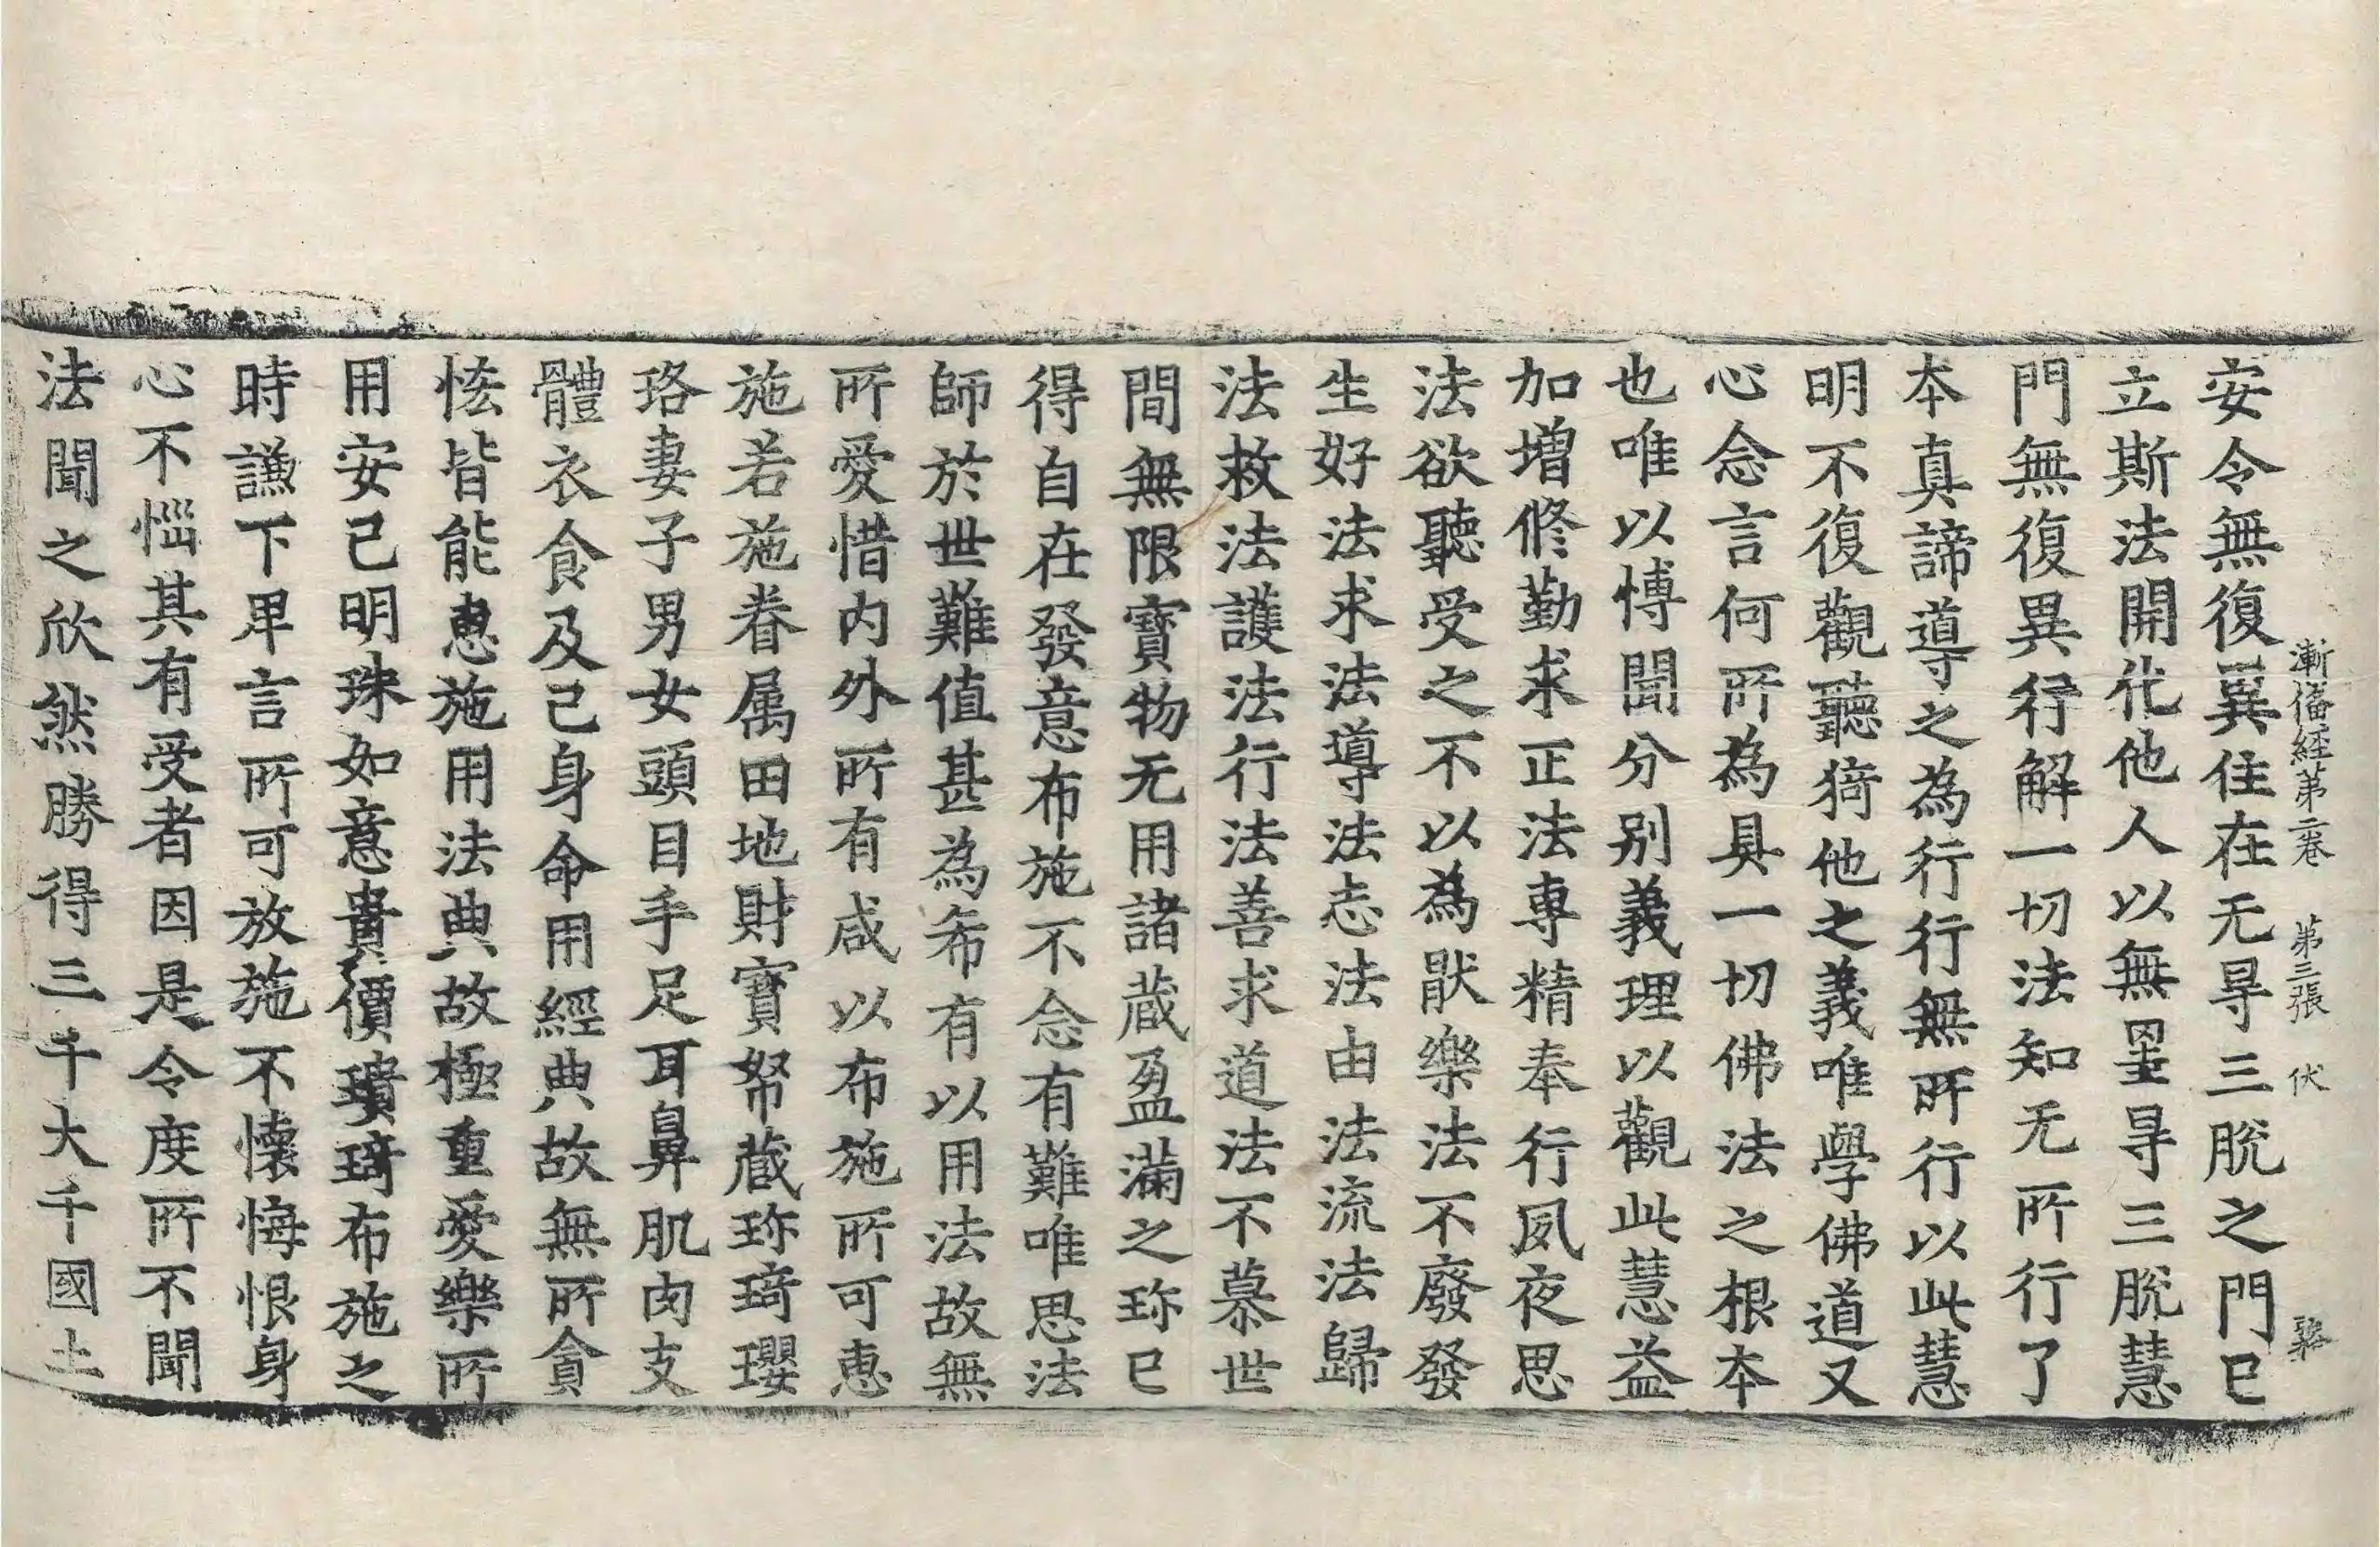 漸僃経第二卷　第三張　伏
安令無復異住在无㝵三脫之門已
立斯法開化他人以無罣㝵三脫慧
門無復異行解一切法知无所行了
本真諦導之為行行無所行以此慧
明不復觀聽猗他之義唯學佛道又
心念言何所為具一切佛法之根本
也唯以愽聞分别義理以觀此慧益
加增修勤求正法專精奉行夙夜思
法欲聽受之不以為猒樂法不廢發
生好法求法導法志法由法流法歸
法救法護法行法善求道法不慕世
間無限寶物无用諸蔵盈滿之珎已
得自在發意布施不念有難唯思法
師於世難值甚為希有以用法故無
所愛惜内外所有咸以布施所可恵
施若施眷属田地財寶帑蔵珎琦瓔
珞妻子男女頭目手足耳鼻肌肉支
體衣食及己身命用經典故無所貪
恡皆能恵施用法典故極重愛樂所
用安己明珠如意貴價瓄琦布施之
時謙下卑言所可放施不懷悔恨身
心不惱其有受者因是令度所不聞
法聞之欣然勝得三千大千國土